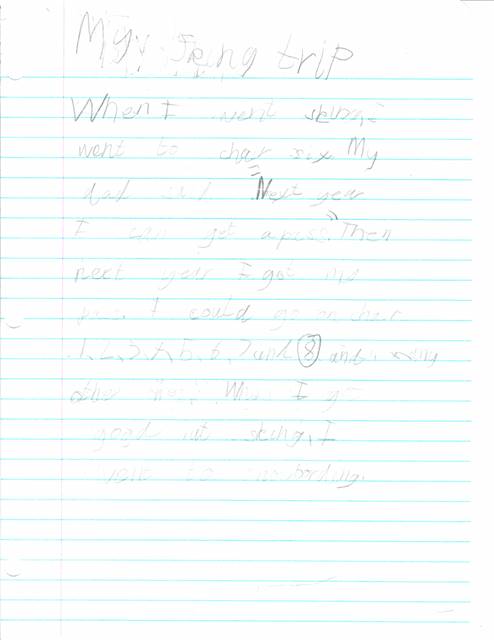 My skiing trip
When I went skiing, I
went to chair six. My
dad said Next year
I can get a pass. Then
next year I got my
pass. I could go on chair
1, 2, 3, 4, 5, 6, 7 and 8 and
other When I g
good at skiing, I
went to